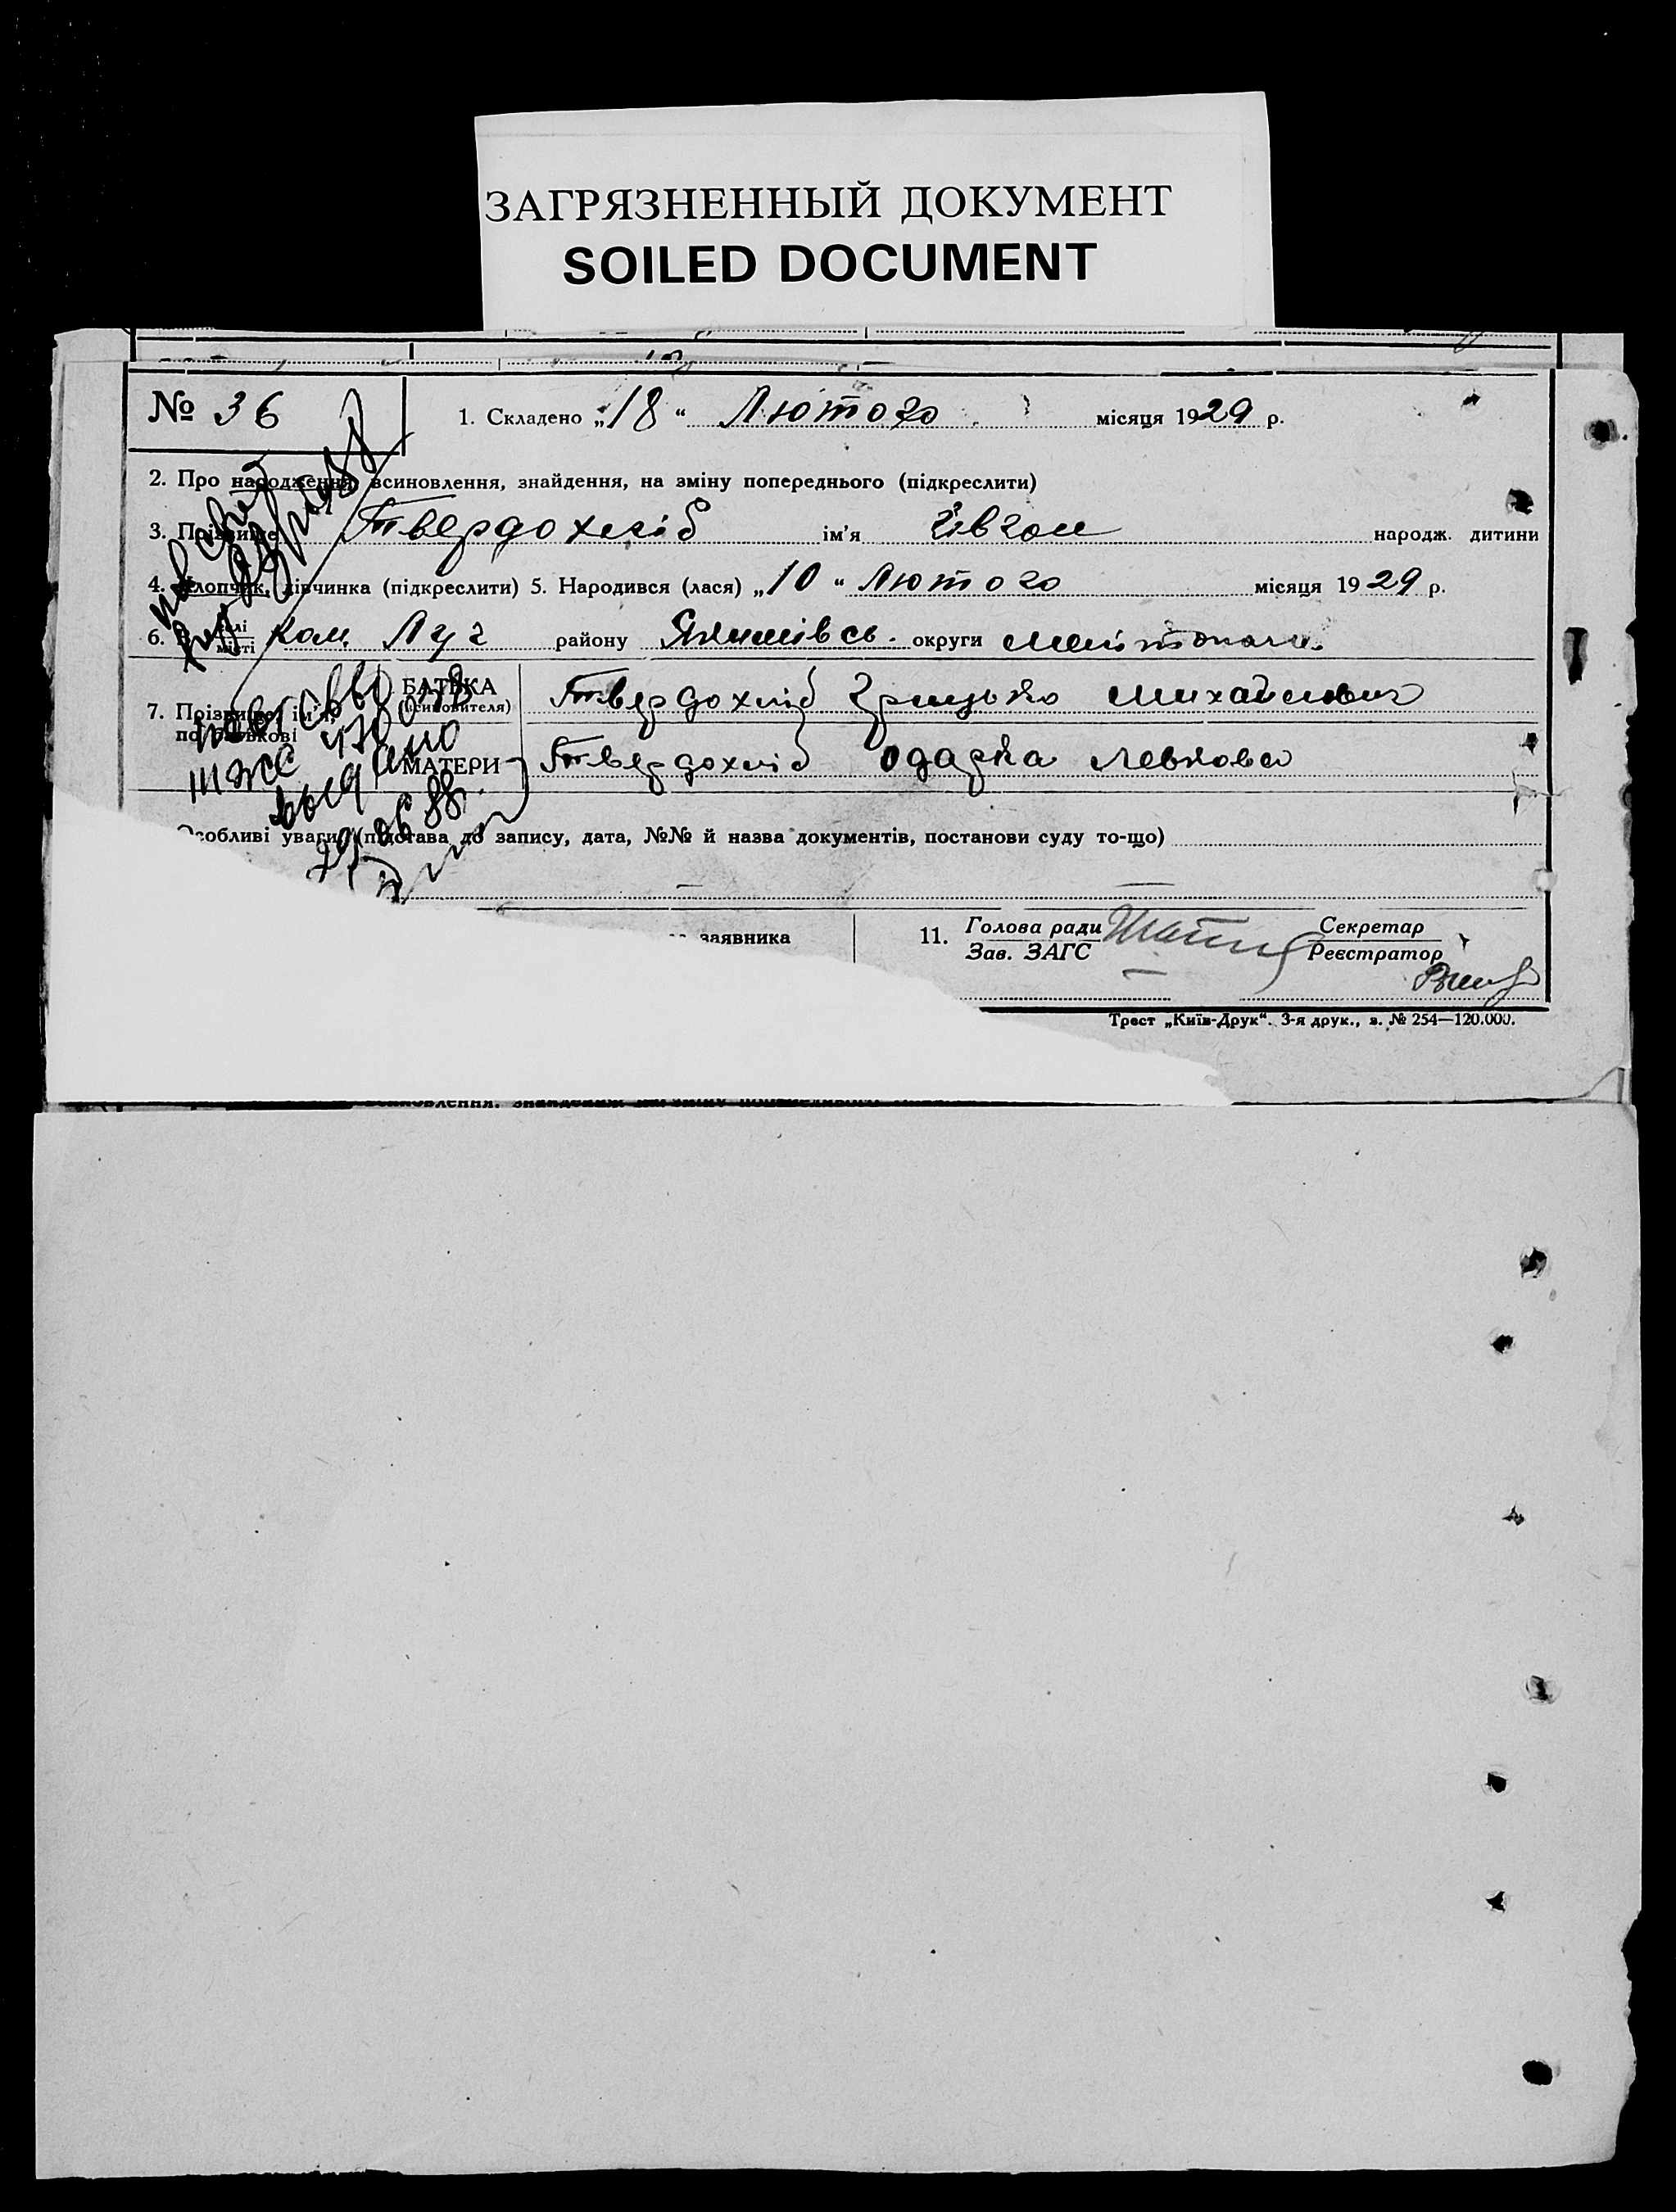 ЗАГРЯЗНЕННЫЙ ДОКУМЕНТ
SOILED DOCUMENT
№ 36
1. Складено „18“ Лютого місяця 1929 р.
2. Про народження, всиновлення, знайдення, на зміну попереднього (підкреслити)
3. Прізвище Твердохліб ім'я народж. дитини
4. Хлопчик, дівчинка (підкреслити) 5. Народився (лася) „10“ Лютого місяця 1929 р.
6. В селі місті Ком. Луг району Якимівсь. округи Мелітопольс.
7. Прізвище, ім'я, по батькові
БАТЬКА (усиновителя) Твердохліб Грицько Михайлович
МАТЕРИ Твердохліб Одарка Левкова
повт св-во
ІІІ ЖС
выдано
Особливі уваги (підстава до запису, дата, №№ й назва документів, постанови суду то-що)
заявника
11. Голова ради Секретар
Зав. ЗАГС Реєстратор
Трест „Київ-Друк“. 3-я друк., з. № 254—120.000.